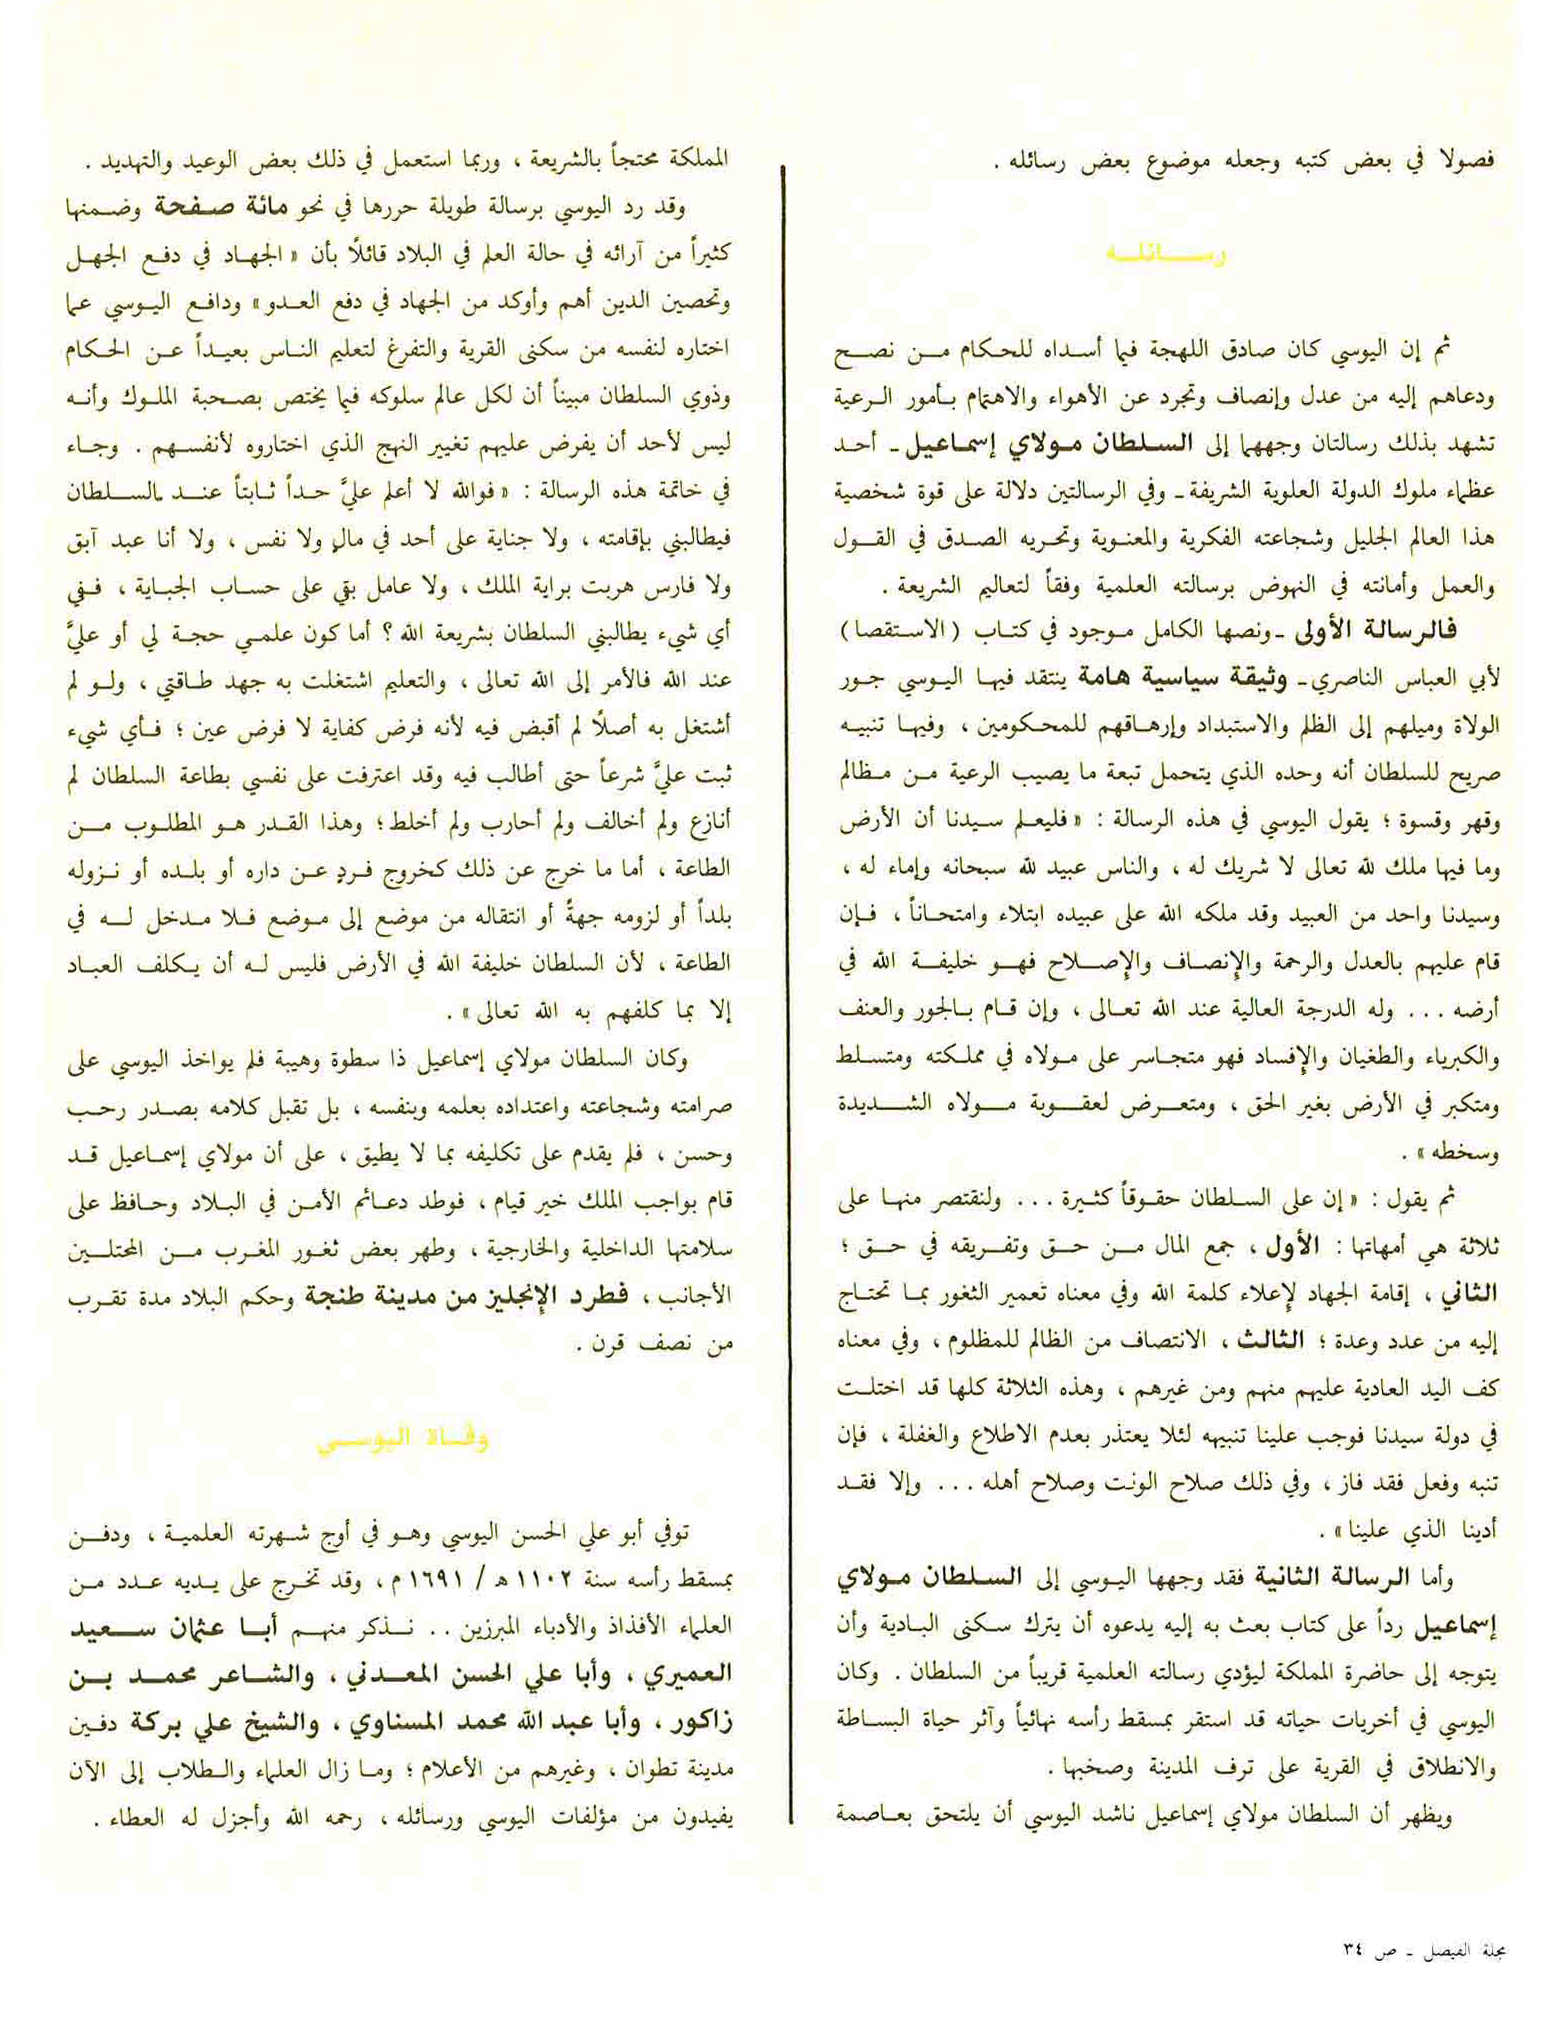 فصولا في بعض كتبه وجعله موضوع بعض رسائله .
رسـائله
ثم إن اليوسي كان صادق اللهجة فيما أسداه للحكام من نصح
ودعاهم إليه من عدل وإنصاف وتجرد عن الأهواء والاهتمام بأمور الرعية
تشهد بذلك رسالتان وجههما إلى السلطان مولاي إسماعيل ـ أحد
عظماء ملوك الدولة العلوية الشريفة ـ وفي الرسالتين دلالة على قوة شخصية
هذا العالم الجليل وشجاعته الفكرية والمعنوية وتحريه الصدق في القول
والعمل وأمانته في النهوض برسالته العلمية وفقاً لتعاليم الشريعة .
فالرسالة الأولى ـ ونصها الكامل موجود في كتاب (الاستقصا)
لأبي العباس الناصري ـ وثيقة سياسية هامة ينتقد فيها اليوسي جور
الولاة وميلهم إلى الظلم والاستبداد وإرهاقهم للمحكومين ، وفيها تنبيه
صريح للسلطان أنه وحده الذي يتحمل تبعة ما يصيب الرعية من مظالم
وقهر وقسوة ؛ يقول اليوسي في هذه الرسالة : «فليعلم سيدنا أن الأرض
وما فيها ملك لله تعالى لا شريك له ، والناس عبيد لله سبحانه وإماء له ،
وسيدنا واحد من العبيد وقد ملكه الله على عبيده ابتلاء وامتحاناً ، فإن
قام عليهم بالعدل والرحمة والإنصاف والإصلاح فهو خليفة الله في
أرضه ... وله الدرجة العالية عند الله تعالى ، وإن قام بالجور والعنف
والكبرياء والطغيان والإفساد فهو متجاسر على مولاه في مملكته ومتسلط
ومتكبر في الأرض بغير الحق ، ومتعرض لعقوبة مولاه الشديدة
وسخطه» .
ثم يقول : «إن على السلطان حقوقاً كثيرة ... ولنقتصر منها على
ثلاثة هي أمهاتها : الأول ، جمع المال من حق وتفريقه في حق ؛
الثاني ، إقامة الجهاد لإعلاء كلمة الله وفي معناه تعمير الثغور بما تحتاج
إليه من عدد وعدة ؛ الثالث ، الانتصاف من الظالم للمظلوم ، وفي معناه
كف اليد العادية عليهم منهم ومن غيرهم ، وهذه الثلاثة كلها قد اختلت
في دولة سيدنا فوجب علينا تنبيهه لئلا يعتذر بعدم الاطلاع والغفلة ، فإن
تنبه وفعل فقد فاز ، وفي ذلك صلاح الوقت وصلاح أهله ... وإلا فقد
أدينا الذي علينا» .
وأما الرسالة الثانية فقد وجهها اليوسي إلى السلطان مولاي
إسماعيل رداً على كتاب بعث به إليه يدعوه أن يترك سكنى البادية وأن
يتوجه إلى حاضرة المملكة ليؤدي رسالته العلمية قريباً من السلطان . وكان
اليوسي في أخريات حياته قد استقر بمسقط رأسه نهائياً وآثر حياة البساطة
والانطلاق في القرية على ترف المدينة وصخبها .
ويظهر أن السلطان مولاي إسماعيل ناشد اليوسي أن يلتحق بعاصمة
المملكة محتجاً بالشريعة ، وربما استعمل في ذلك بعض الوعيد والتهديد .
وقد رد اليوسي برسالة طويلة حررها في نحو مائة صفحة وضمنها
كثيراً من آرائه في حالة العلم في البلاد قائلاً بأن «الجهاد في دفع الجهل
وتحصين الدين أهم وأوكد من الجهاد في دفع العدو» ودافع اليوسي عما
اختاره لنفسه من سكنى القرية والتفرغ لتعليم الناس بعيداً عن الحكام
وذوي السلطان مبيناً أن لكل عالم سلوكه فيما يختص بصحبة الملوك وأنه
ليس لأحد أن يفرض عليهم تغيير النهج الذي اختاروه لأنفسهم . وجاء
في خاتمة هذه الرسالة : «فوالله لا أعلم عليَّ حداً ثابتاً عند السلطان
فيطالبني بإقامته ، ولا جناية على أحد في مالٍ ولا نفس ، ولا أنا عبد آبق
ولا فارس هربت براية الملك ، ولا عامل بقي على حساب الجباية ، ففي
أي شيء يطالبني السلطان بشريعة الله ؟ أما كون علمي حجة لي أو عليَّ
عند الله فالأمر إلى الله تعالى ، والتعليم اشتغلت به جهد طاقتي ، ولو لم
أشتغل به أصلاً لم أقبض فيه لأنه فرض كفاية لا فرض عين ؛ فأي شيء
ثبت عليَّ شرعاً حتى أطالب فيه وقد اعترفت على نفسي بطاعة السلطان لم
أنازع ولم أخالف ولم أحارب ولم أخلط ؛ وهذا القدر هو المطلوب من
الطاعة ، أما ما خرج عن ذلك كخروج فردٍ عن داره أو بلده أو نزوله
بلداً أو لزومه جهةً أو انتقاله من موضع إلى موضع فلا مدخل له في
الطاعة ، لأن السلطان خليفة الله في الأرض فليس له أن يكلف العباد
إلا بما كلفهم به الله تعالى» .
وكان السلطان مولاي إسماعيل ذا سطوة وهيبة فلم يواخذ اليوسي على
صرامته وشجاعته واعتداده بعلمه وبنفسه ، بل تقبل كلامه بصدر رحب
وحسن ، فلم يقدم على تكليفه بما لا يطيق ، على أن مولاي إسماعيل قد
قام بواجب الملك خير قيام ، فوطد دعائم الأمن في البلاد وحافظ على
سلامتها الداخلية والخارجية ، وطهر بعض ثغور المغرب من المحتلين
الأجانب ، فطرد الإنجليز من مدينة طنجة وحكم البلاد مدة تقرب
من نصف قرن .
وفاة اليوسي
توفي أبو علي الحسن اليوسي وهو في أوج شهرته العلمية ، ودفن
بمسقط رأسه سنة ١١٠٢ هـ / ١٦٩١ م ، وقد تخرج على يديه عدد من
العلماء الأفذاذ والأدباء المبرزين .. نذكر منهم أبا عثمان سعيد
العميري ، وأبا علي الحسن المعدني ، والشاعر محمد بن
زاكور ، وأبا عبد الله محمد المسناوي ، والشيخ علي بركة دفين
مدينة تطوان ، وغيرهم من الأعلام ؛ وما زال العلماء والطلاب إلى الآن
يفيدون من مؤلفات اليوسي ورسائله ، رحمه الله وأجزل له العطاء .
مجلة الفيصل ـ ص ٣٤